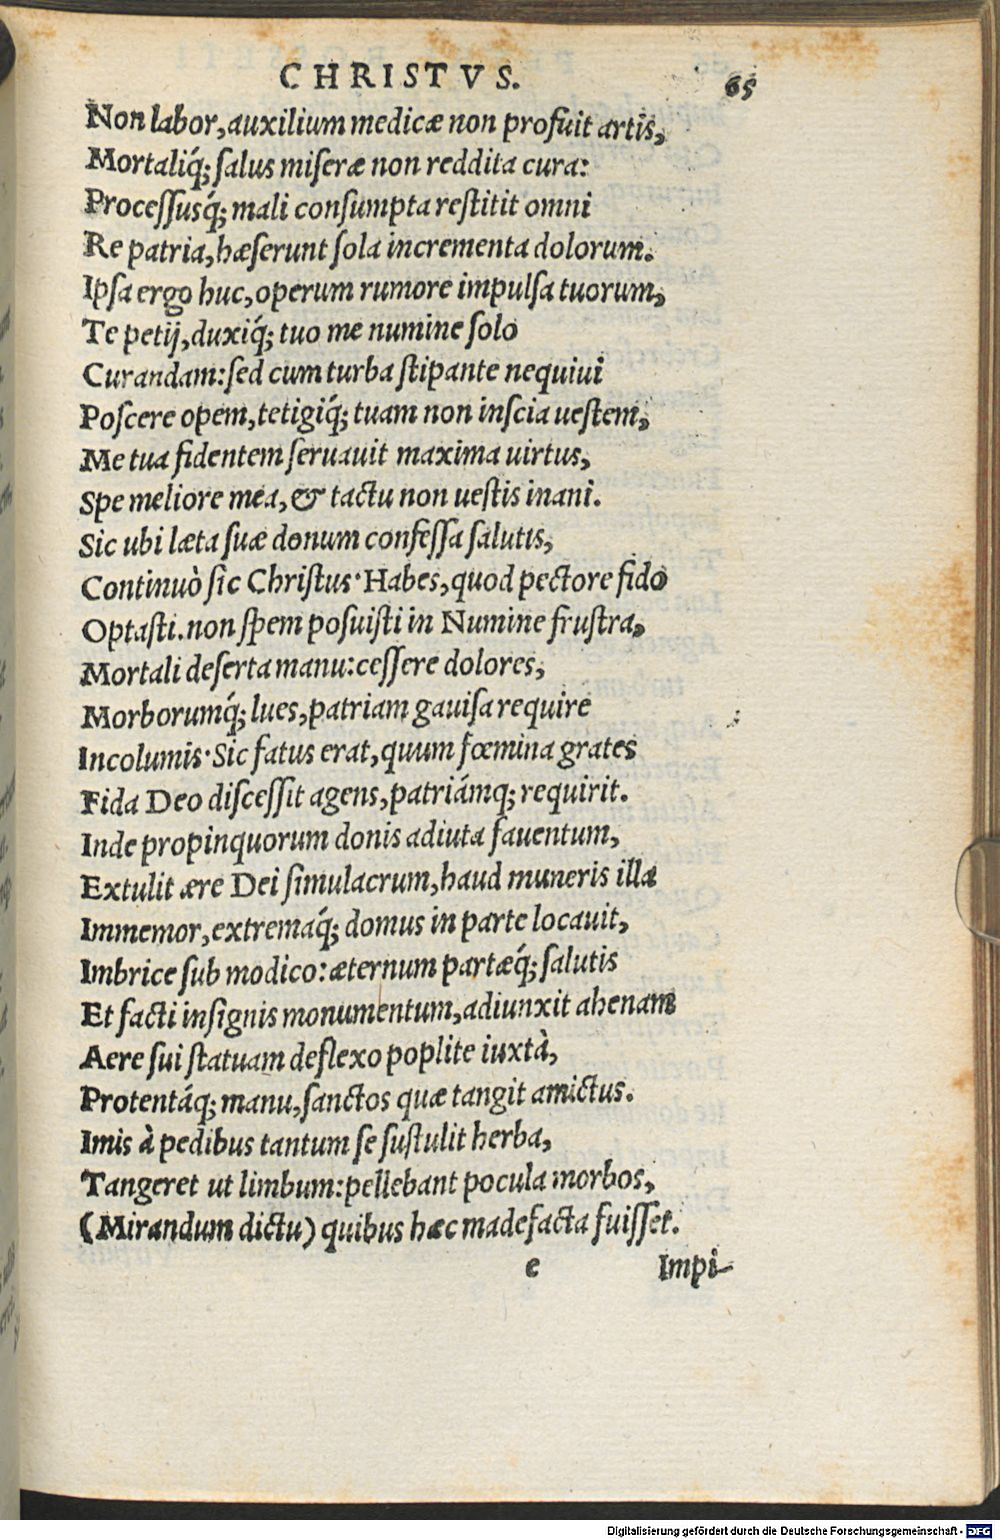 CHRISTVS. 65
Non labor, auxilium medicæ non profuit artis,
Mortaliq́; salus miseræ non reddita cura:
Processusq́; mali consumpta restitit omni
Re patria, hæserunt sola incrementa dolorum.
Ipsa ergo huc, operum rumore impulsa tuorum,
Te petij, duxiq́; tuo me numine solo
Curandam: sed cum turba stipante nequiui
Poscere opem, tetigiq́; tuam non inscia uestem,
Me tua fidentem seruauit maxima uirtus,
Spe meliore mea, & tactu non uestis inani.
Sic ubi læta suæ donum confessa salutis,
Continuò sic Christus· Habes, quod pectore fido
Optasti. non spem posuisti in Numine frustra,
Mortali deserta manu: cessere dolores,
Morborumq́; lues, patriam gauisa require
Incolumis· Sic fatus erat, quum fœmina grates
Fida Deo discessit agens, patriámq; requirit.
Inde propinquorum donis adiuta fauentum,
Extulit ære Dei simulacrum, haud muneris illa
Immemor, extremaq́; domus in parte locauit,
Imbrice sub modico: æternum partæq́; salutis
Et facti insignis monumentum, adiunxit ahenam
Aere sui statuam deflexo poplite iuxtà,
Protentáq; manu, sanctos quæ tangit amictus.
Imis à pedibus tantum se sustulit herba,
Tangeret ut limbum: pellebant pocula morbos,
(Mirandum dictu) quibus hæc madefacta fuisset.
e Impi-
Digitalisierung gefördert durch die Deutsche Forschungsgemeinschaft - DFG